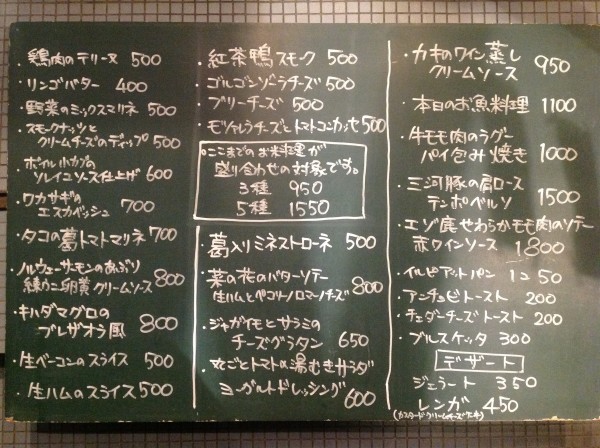 ・鶏肉のテリーヌ 500
・リンゴバター 400
・野菜のミックスマリネ 500
・スモークナッツと
クリームチーズのディップ 500
・ボイル小カブの
ソレイユソース仕上げ 600
・ワカサギの
エスカベッシュ 700
・タコの葛トマトマリネ 700
・ノルウェーサーモンのあぶり
練りこ卵黄クリームソース 800
・キハダマグロの
ブレザオラ風 800
・生ベーコンのスライス 500
・生ハムのスライス 500
・紅茶鴨スモーク 500
・ゴルゴンゾーラチーズ 500
・ブリーチーズ 500
・モッツァレラチーズとトマトコンカッセ 500
○ここまでのお料理が
盛り合わせの対象です。
3種 950
5種 1550
・葛入りミネストローネ 500
・菜の花のバターソテー
生ハムとペコリーノロマーノチーズ 800
・ジャガイモとサラミの
チーズグラタン 650
・丸ごとトマトの湯むきサラダ
ヨーグルトドレッシング 600
・カキのワイン蒸し
クリームソース 950
・本日のお魚料理 1100
・牛モモ肉のラグー
パイ包み焼き 1000
・三河豚の肩ロース
テンポペルソ 1500
・エゾ鹿せわらかモモ肉のソテー
赤ワインソース 1800
・イルピアットパン 1コ 50
・アンチョビトースト 200
・チェダーチーズトースト 200
・ブルスケッタ 300
デザート
ジェラート 350
レンガ 450
(カスタードクリームチーズケーキ)